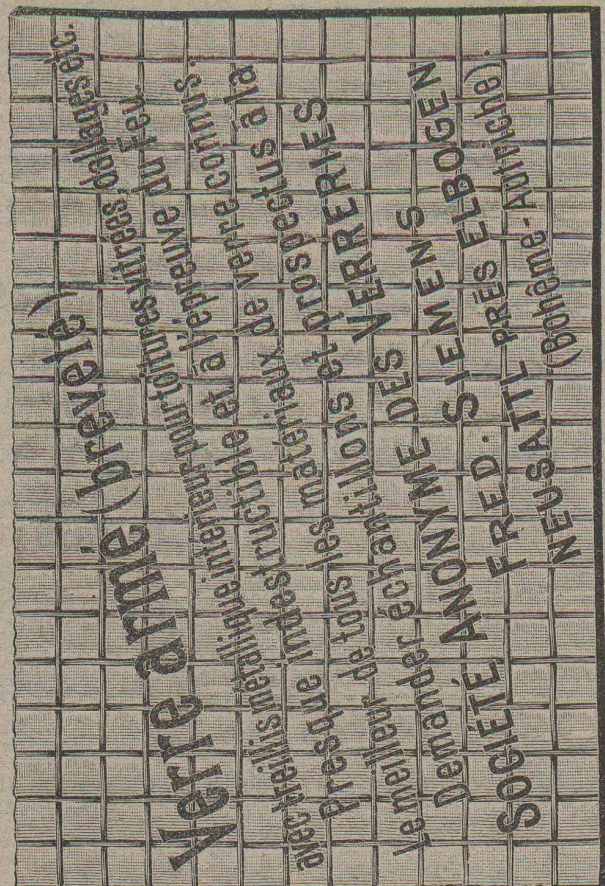 Verre armé (breveté)
avec treillis métallique intérieur, pour toitures vitrées, dallages etc.
Presque indestructible et à l'épreuve du feu.
Le meilleur de tous les matériaux de verre connus.
Demander échantillons et prospectus à la
SOCIÉTÉ ANONYME DES VERRERIES
FRED. SIEMENS
NEUSATTL PRÈS ELBOGEN
(Bohême-Autriche).